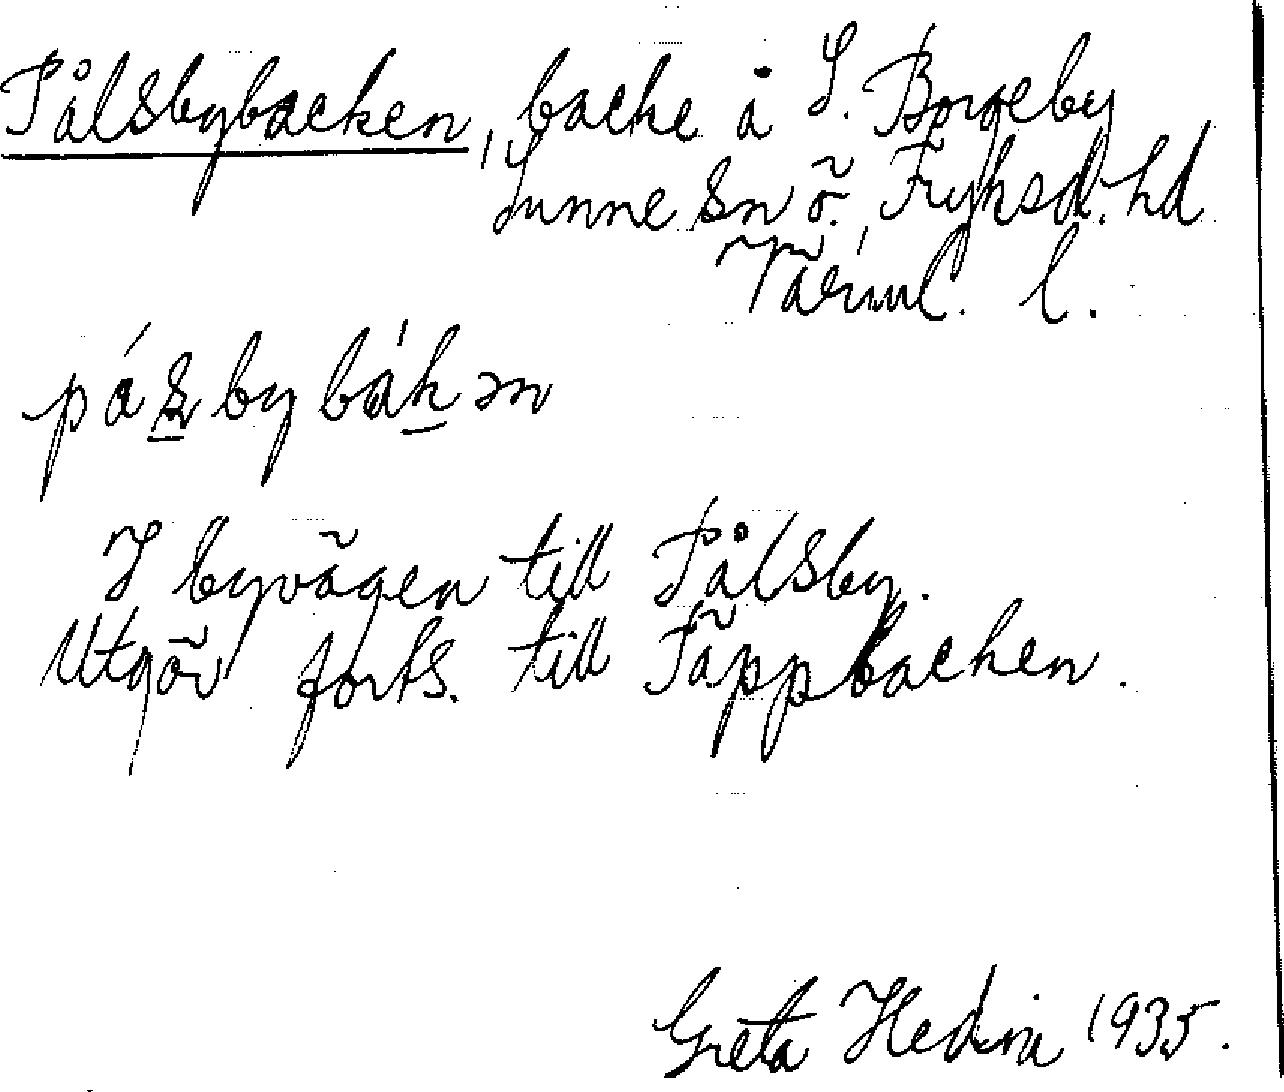 Pålsbybacken, backe å S. Borgeby
Sunne sn ö. Fryksd. hd
Värml. l.
påsbybákən
I byvägen till Pålsby.
Utgör forts. till Täppbacken.
Greta Hedin 1935.